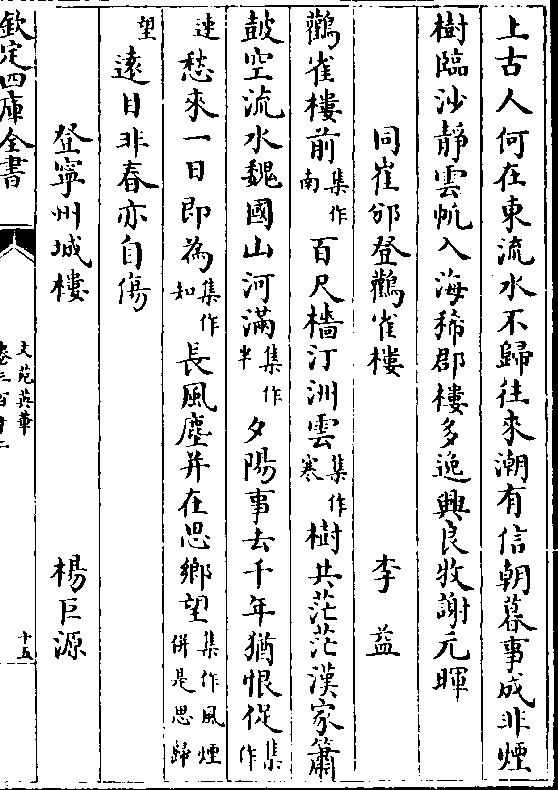 上古人何在東流水不歸往來潮有信朝暮事成非煙
樹臨沙靜雲帆入海稀郡樓多逸興良牧謝元暉
同崔邠登鸛雀樓 李益
鸛雀樓前集作南百尺檣汀洲雲集作寒樹共茫茫漢家簫
鼓空流水魏國山河滿集作半夕陽事去千年猶恨促集作
速愁來一日即為集作如長風塵并在思鄉望集作風煙併是思歸
望遠目非春亦自傷
登寧州城樓 楊巨源
欽定四庫全書
文苑英華
十五